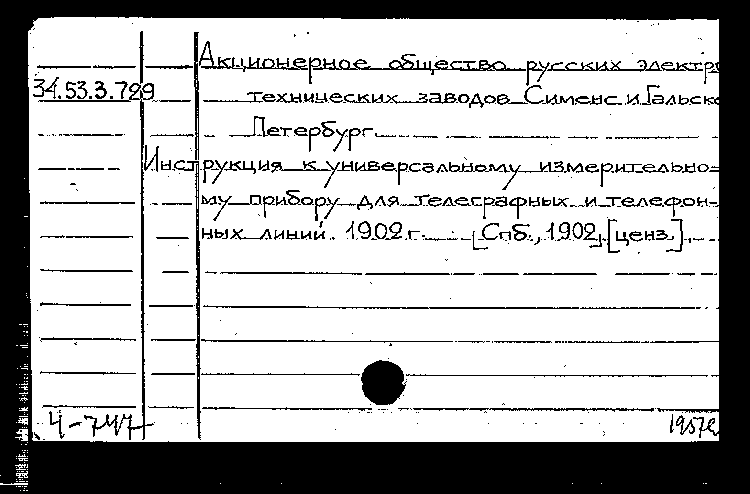 Акционерное общество русских электро
34.53.3.729 технических заводов Сименс и Гальске
Петербург.
Инструкция к универсальному измерительно=
му прибору для телеграфных и телефон-
ных линий. 1902 г. [Спб., 1902]. [ценз.].
4-747
1957г.